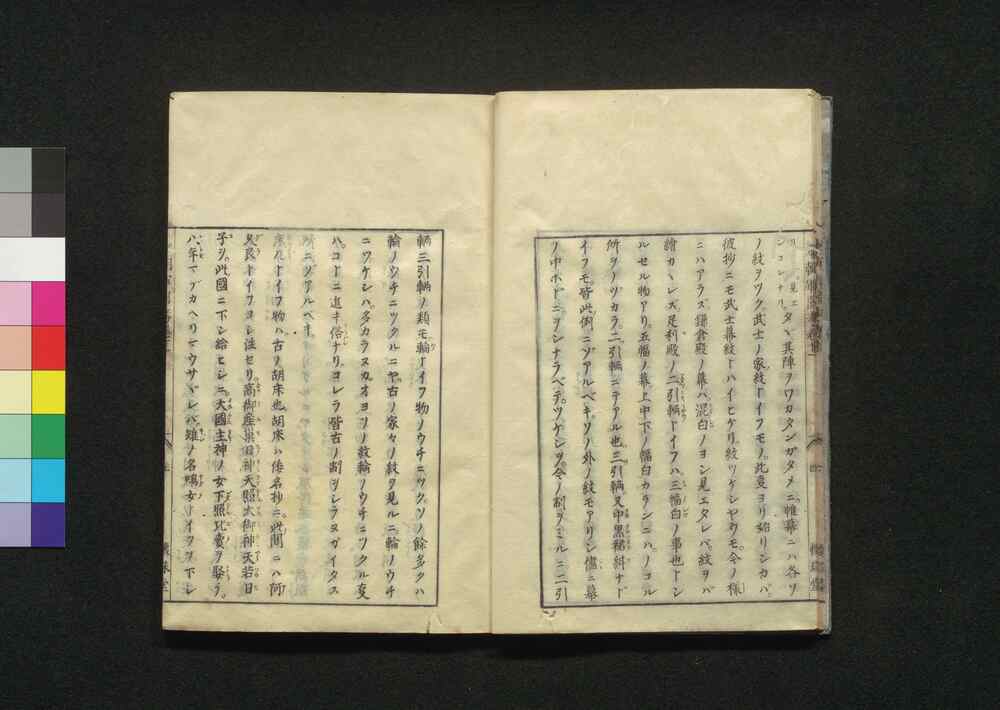 見エタヾ其陣ヲワカタンガタメニ帷幕ニハ各ソ
ンコレナリ
ノ紋ヲツク武士ノ家紋トイフモノ此意ヨリ始リシカバ
彼抄ニモ武士幕紋トハイヒケリ紋ツケシヤウモ今ノ様
ニハアラズ鎌倉殿ノ幕ハ混白ノヨシ見エタレバ紋ヲバ
繪カヽレズ足利殿ノ二引輛トイフハ三幅白ノ事也トシ
ルセル物アリ五幅ノ幕上中下ノ幅白カランニハノコル
所ヲノヅカラ二引輛ニテアル也三引輛又中黒裾斜ナド
イフモ皆此例ニゾアルベキソノ外ノ紋モアリシ儘ニ幕
ノ中ホドニヲシナラベテツケシヲ今ノ制ヲミルニ二引
輛三引輛ノ類モ輪トイフ物ノウチニツクソノ餘多クハ
輪ノウチニツクルニヤ古ノ家々ノ紋ヲ見ルニ輪ノウチ
ニツケシハ多カラヌカオヨソノ紋輪ノウチニツクル変
ハコトニ近キ俗ナリコレラ皆古ノ制ヲシラヌガイタス
所ニゾアルベキ
床几トイフ物ハ古ノ胡床也胡床ハ倭名抄ニ此間ニハ阿
久良トイフヨシ注セリ高御産巣日神天照大御神天若日
子ヲ此國ニ下シ給ヒシニ大國主神ノ女下照比賣ヲ娶テ
八年マデカヘリモウサヾレバ雉ノ名鳴女トイフヲ下シ